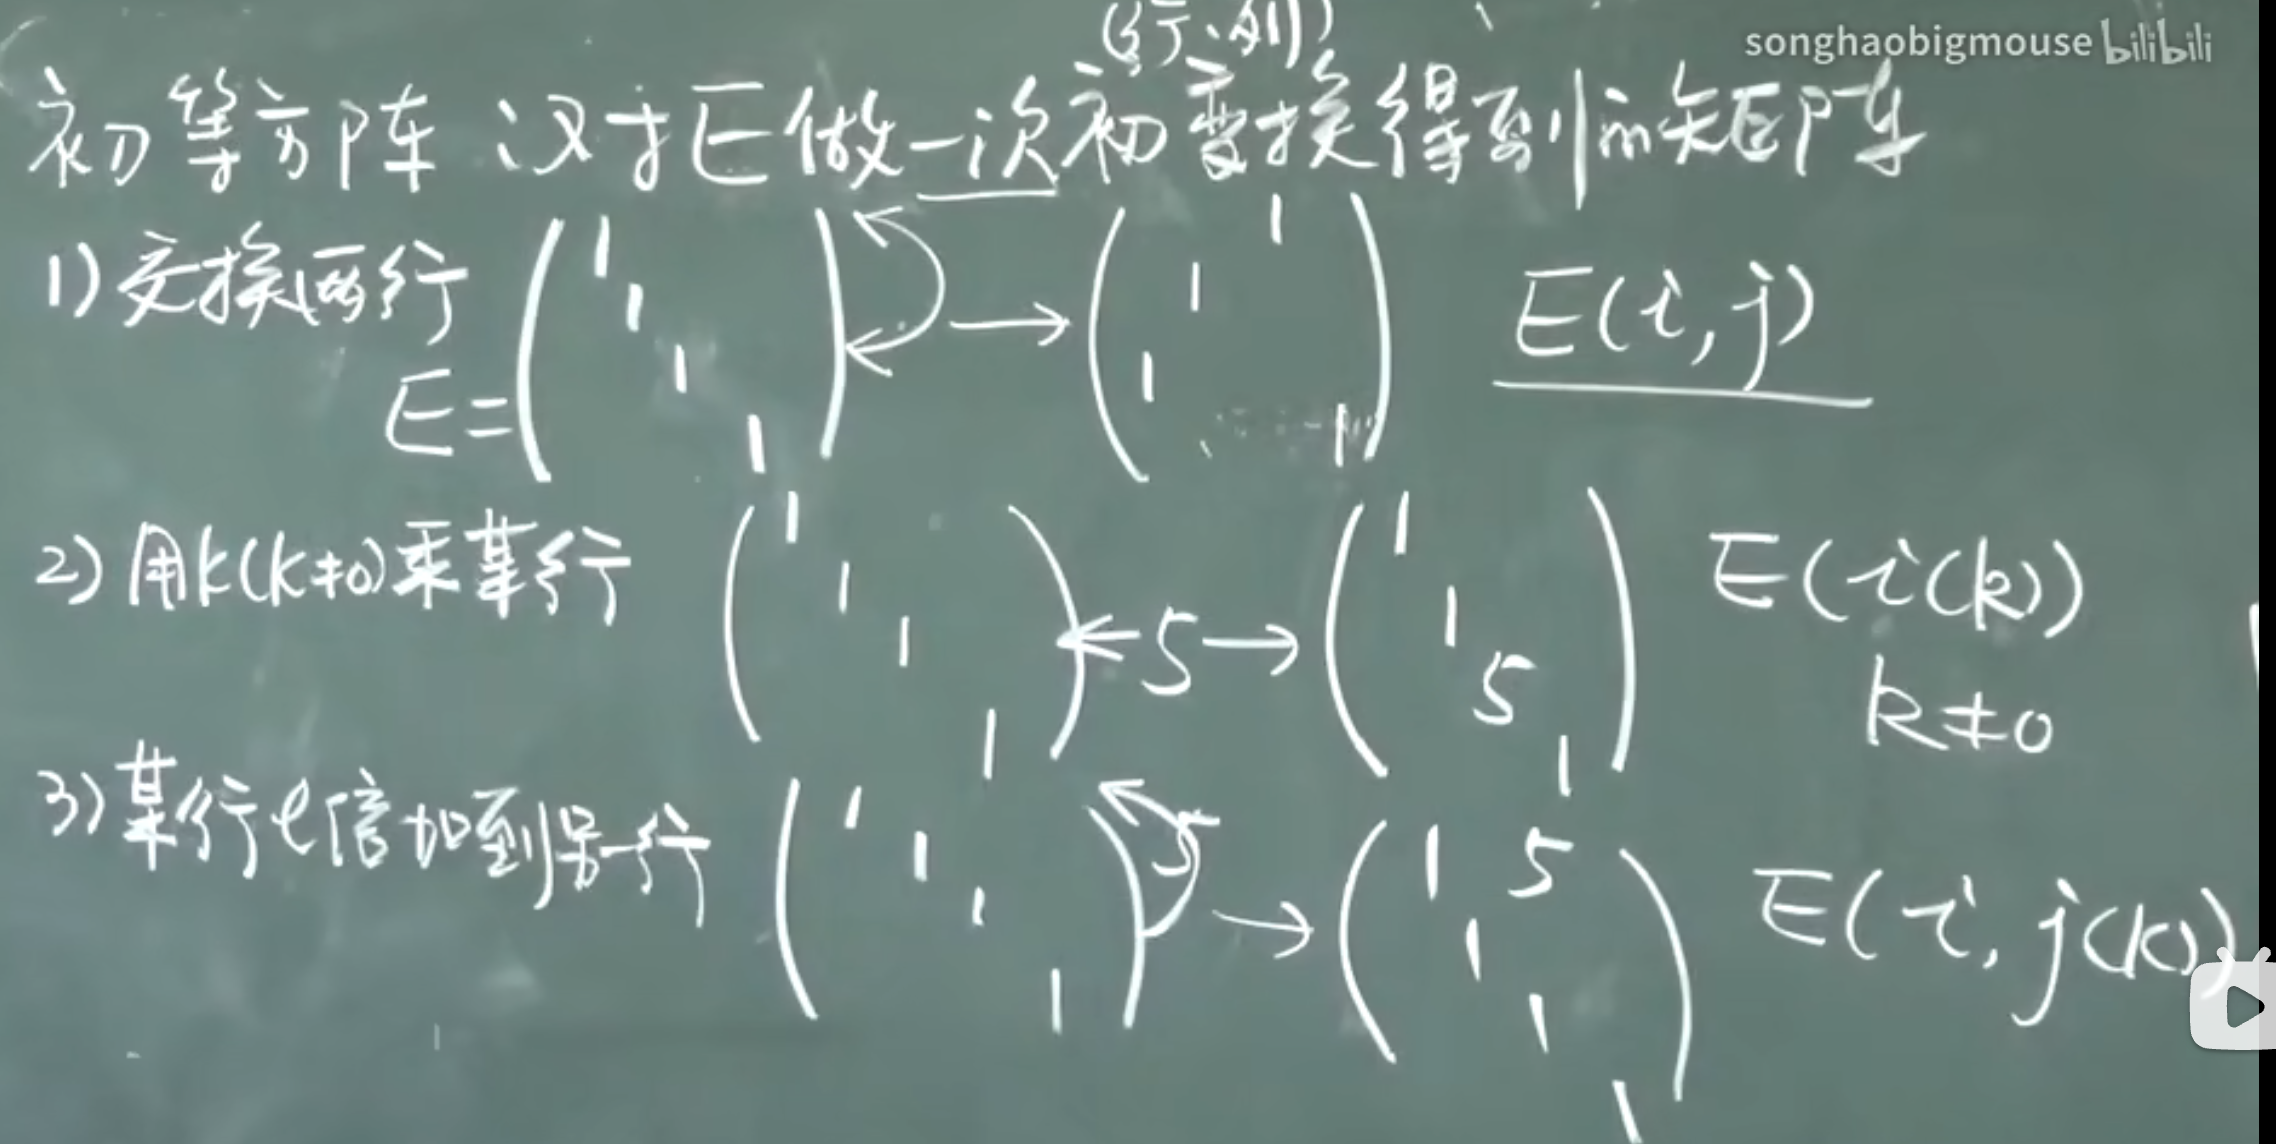 (行、列)
songhaobigmouse bilibili
初等方阵:对E做一次初变换得到的矩阵
1) 交换两行
E= ( 1 1 1 1 ) → ( 1 1 1 1 ) E(i,j)
2) 用k(k≠0)乘某行 ( 1 1 1 1 ) ← 5 → ( 1 1 5 1 ) E(i(k))
k≠0
3) 某行l倍加到另一行 ( 1 1 1 1 ) 5 → ( 1 5 1 1 1 ) E(i,j(k))